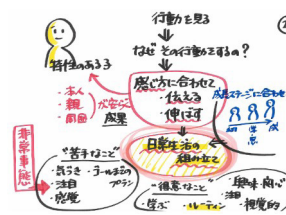 行動を見る
なぜ その行動をするの?
特性のある子
感じ方に合わせて
・伝える
・伸ばす
・本人
・親
・周囲
が安らぐ
成果
成長ステージに合わせ
幼
学
思
成
日常生活の
組み立て
非常事態
"苦手なこと"
・気づき
・注目
・感覚
・ゴールまでの
プラン
"得意なこと"
・学ぶ
・ルーティン
・興味・関心
・注目
・視覚的